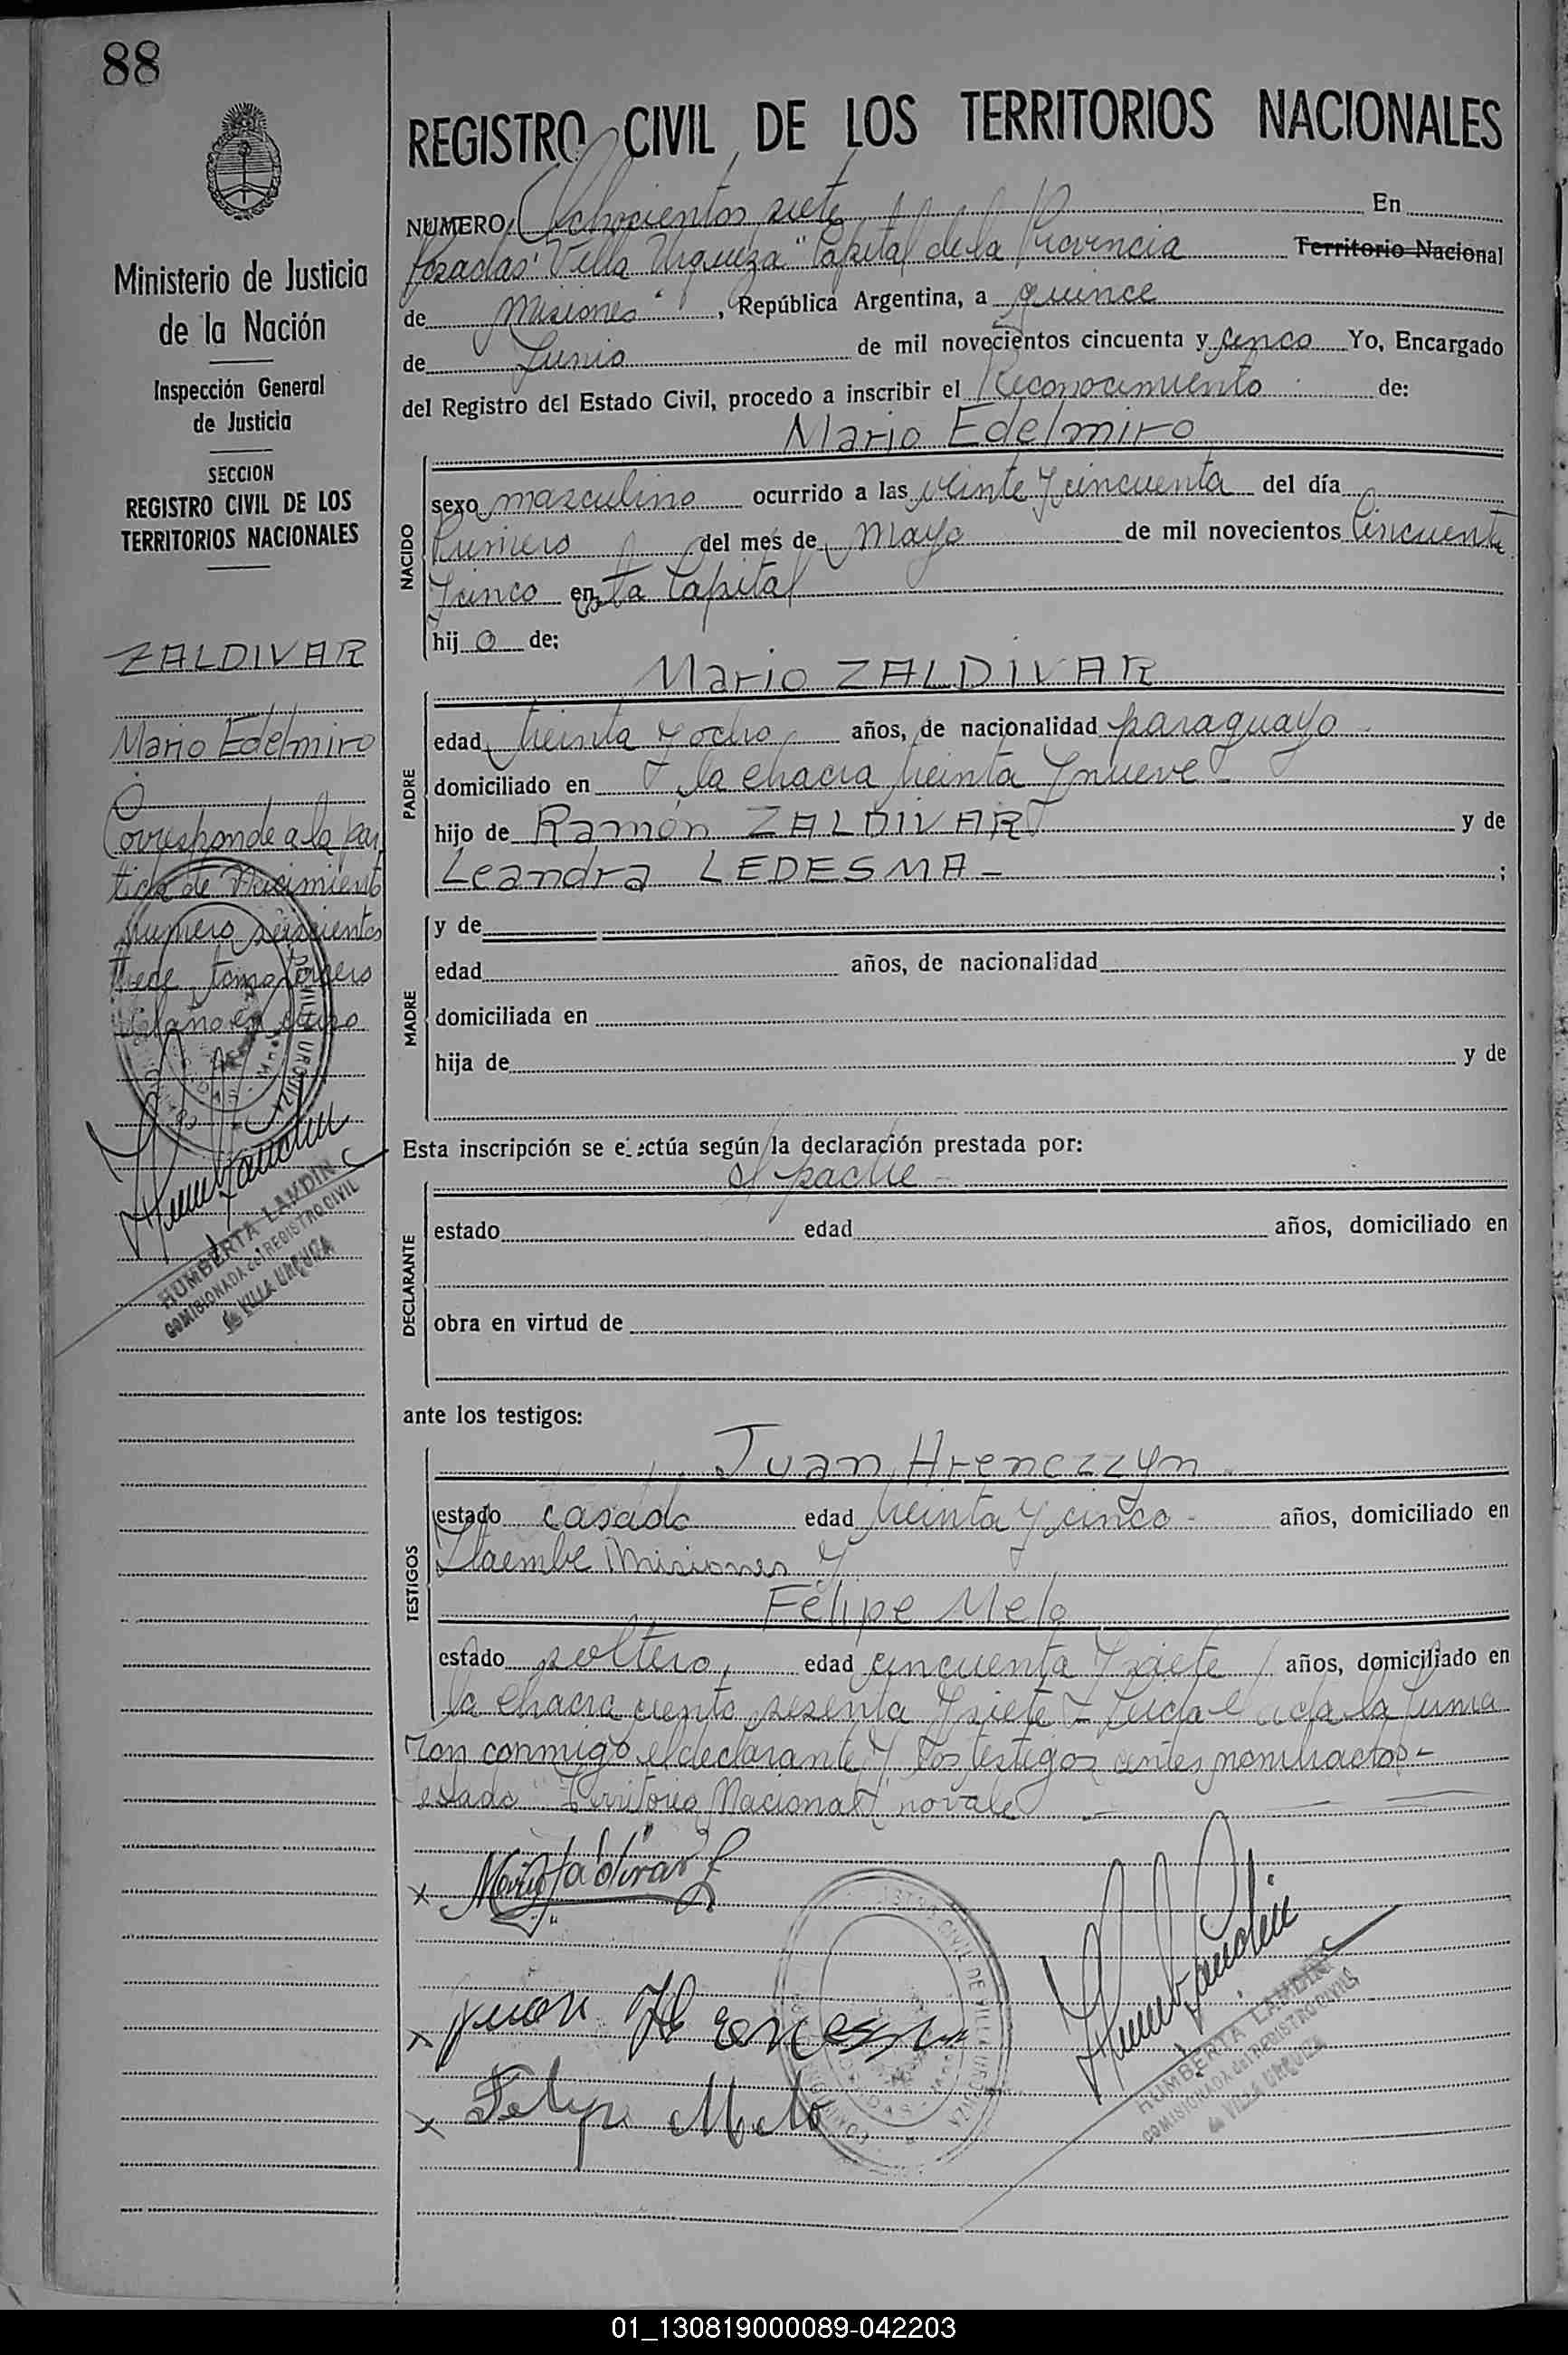 88
REGISTRO CIVIL DE LOS TERRITORIOS NACIONALES
NUMERO Ochocientos siete En
Posadas "Villa Urquiza" Capital de la Provincia Territorio Nacional
de Misiones, República Argentina, a quince
de Junio de mil novecientos cincuenta y cinco Yo, Encargado
del Registro del Estado Civil, procedo a inscribir el Reconocimiento de:
Mario Edelmiro
NACIDO
sexo masculino ocurrido a las veinte y cincuenta del día
Primero del mes de Mayo de mil novecientos Cincuenta
y cinco en la Capital
hij o de:
Mario ZALDIVAR
PADRE
edad treinta y ocho años, de nacionalidad paraguayo
domiciliado en la chacra treinta y nueve -
hijo de Ramón ZALDIVAR y de
Leandra LEDESMA - ;
MADRE
y de
edad años, de nacionalidad
domiciliada en
hija de y de
Esta inscripción se efectúa según la declaración prestada por:
el padre -
DECLARANTE
estado edad años, domiciliado en
obra en virtud de
ante los testigos:
TESTIGOS
Juan Hrenczzyn
estado casado edad treinta y cinco - años, domiciliado en
Misiones y
Felipe Melo
estado soltero, edad cincuenta y siete años, domiciliado en
la chacra ciento sesenta y siete - Leida el acta la firma
ron conmigo el declarante y los testigos antes nombrados -
"Territorio Nacional" no vale
x Mario Zaldivar
x Juan
x Felipe Melo
HUMBERTA LANDIN
COMISIONADA del REGISTRO CIVIL
de VILLA URQUIZA
Ministerio de Justicia
de la Nación
Inspección General
de Justicia
SECCION
REGISTRO CIVIL DE LOS
TERRITORIOS NACIONALES
ZALDIVAR
Mario Edelmiro
Corresponde a la par
tida de Nacimiento
numero seiscientos
trece tomo tercero
del año en curso
HUMBERTA LANDIN
COMISIONADA del REGISTRO CIVIL
de VILLA URQUIZA
01_130819000089-042203